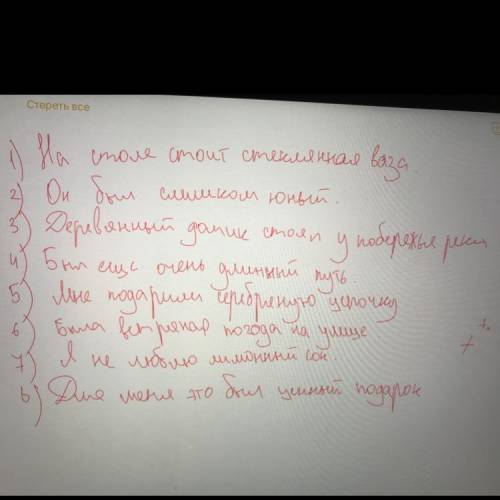 Стереть все
1) На столе стоит стеклянная ваза.
2) Он был слишком юный.
3) Деревянный домик стоял у побережья реки
4) Был еще очень длинный путь.
5) Мне подарили серебряную цепочку
6) Была ветряная погода на улице
7) Я не люблю лимонный сок.
8) Для меня это был ценный подарок